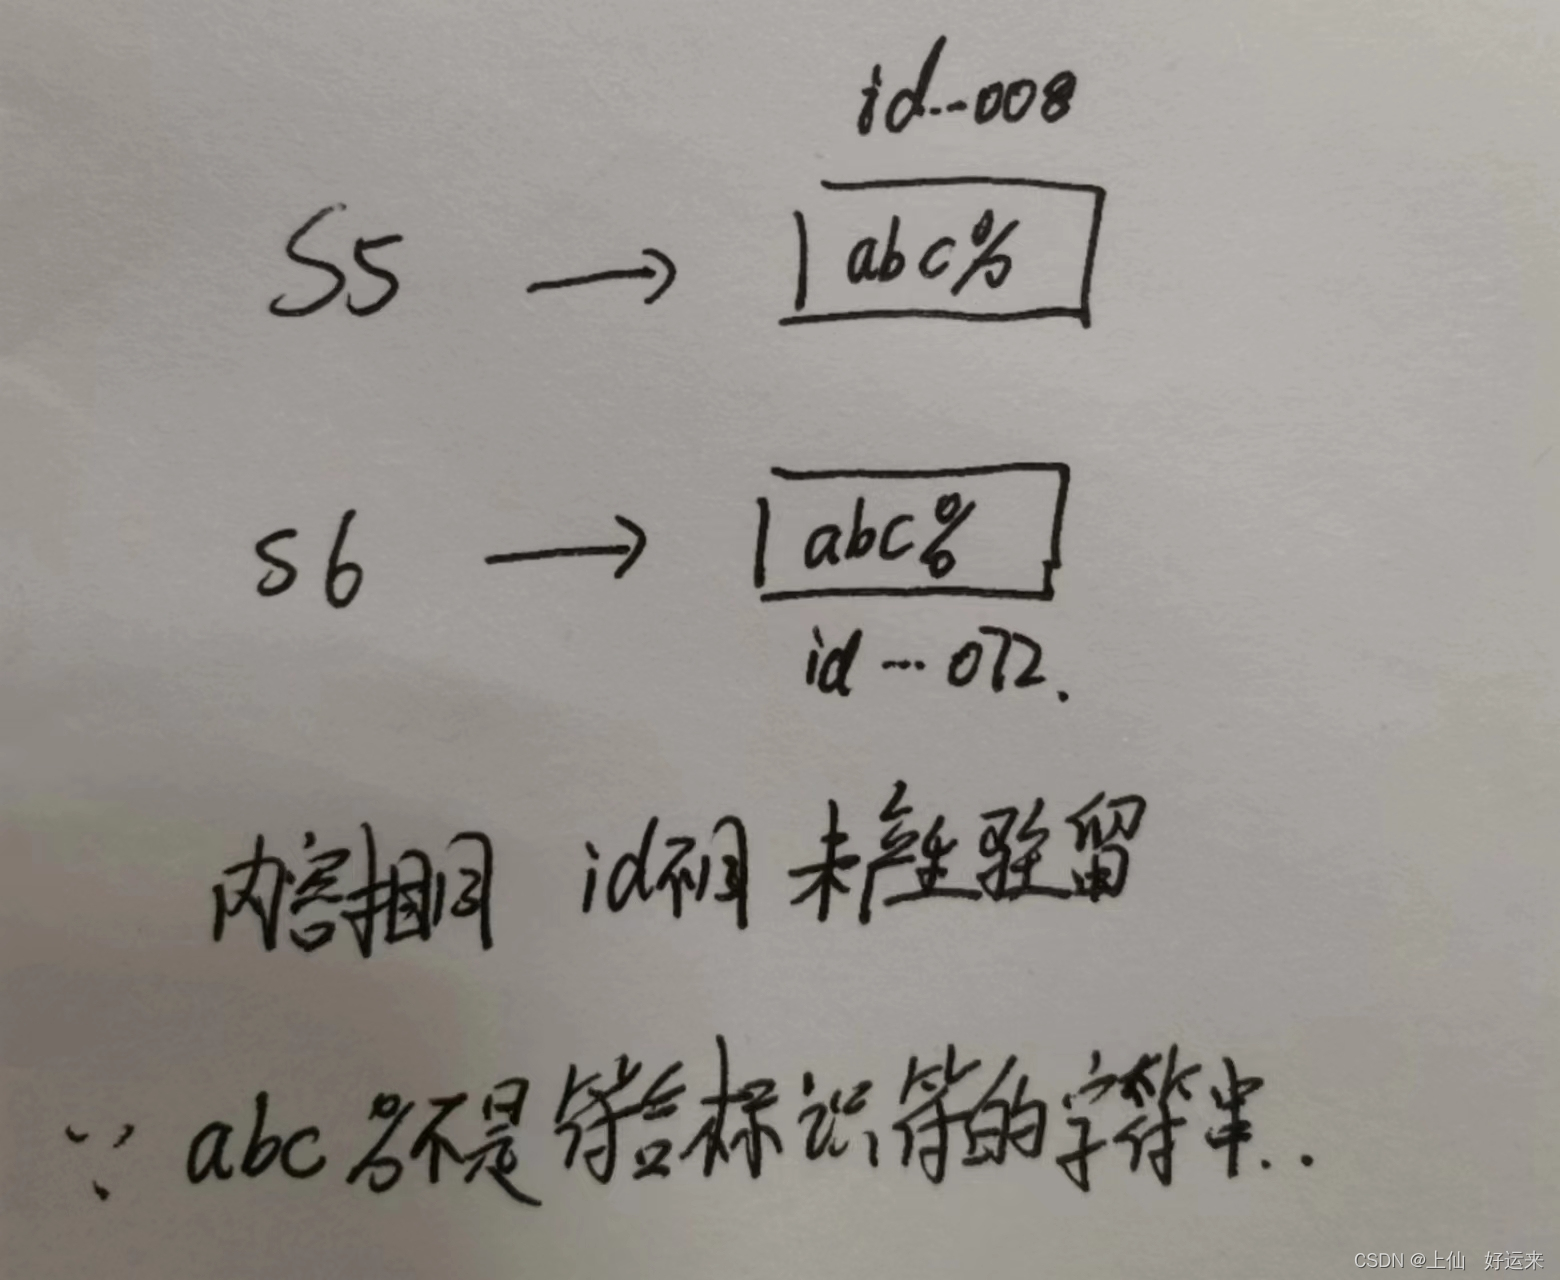 id...008
S5 → abc%
s6 → abc%
id...072.
内容相同 id不同 未产生驻留
∵ abc%不是符合标识符的字符串..
CSDN @上仙 好运来